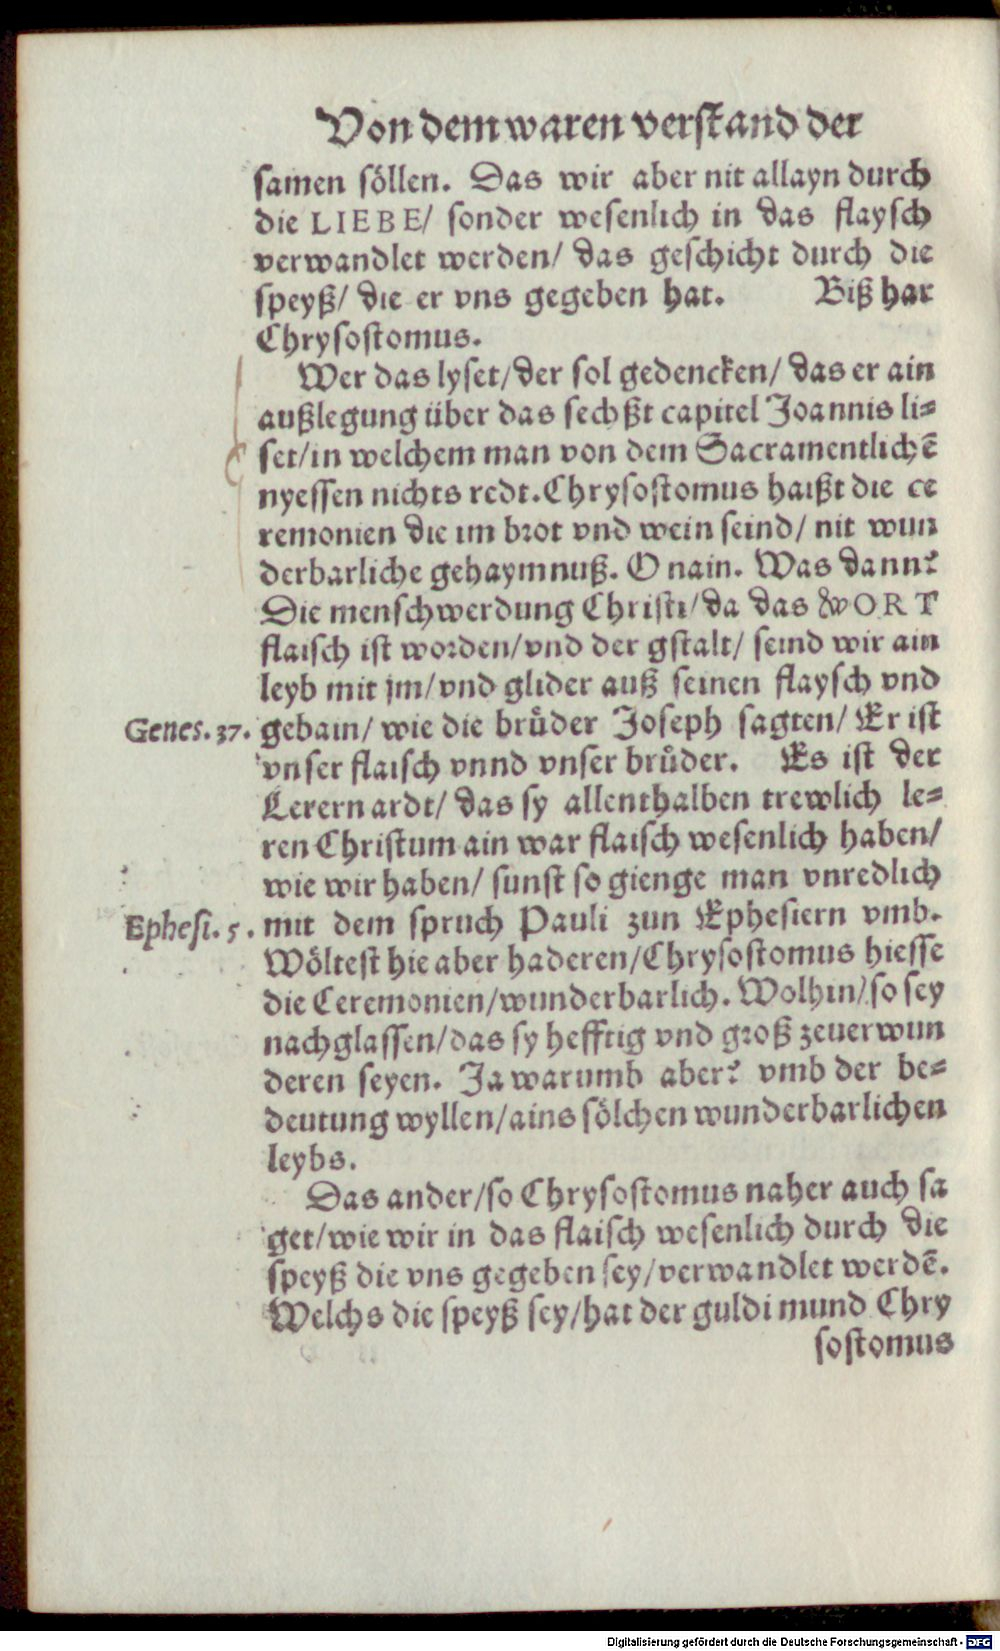 Von dem waren verstand der
samen söllen. Das wir aber nit allayn durch
die LIEBE/ sonder wesenlich in das flaysch
verwandlet werden/ das geschicht durch die
speyß/ die er vns gegeben hat. Biß har
Chrysostomus.
Wer das lyset/ der sol gedencken/ das er ain
außlegung über das sechßt capitel Joannis li=
set/ in welchem man von dem Sacramentlichē
nyessen nichts redt. Chrysostomus haißt die ce
remonien die im brot vnd wein seind/ nit wun
derbarliche gehaymnuß. O nain. Was dann?
Die menschwerdung Christi/ da das WORT
flaisch ist worden/ vnd der gstalt/ seind wir ain
leyb mit jm/ vnd glider auß seinen flaysch vnd
Genes. 37. gebain/ wie die brůder Joseph sagten/ Er ist
vnser flaisch vnnd vnser brůder. Es ist der
Lerern ardt/ das sy allenthalben trewlich le=
ren Christum ain war flaisch wesenlich haben/
wie wir haben/ sunst so gienge man vnredlich
Ephesi. 5. mit dem spruch Pauli zun Ephesiern vmb.
Wöltest hie aber haderen/ Chrysostomus hiesse
die Ceremonien/ wunderbarlich. Wolhin/ so sey
nachglassen/ das sy hefftig vnd groß zeuerwun
deren seyen. Ja warumb aber? vmb der be=
deutung wyllen/ ains sölchen wunderbarlichen
leybs.
Das ander/ so Chrysostomus naher auch sa
get/ wie wir in das flaisch wesenlich durch die
speyß die vns gegeben sey/ verwandlet werdē.
Welchs die speyß sey/ hat der guldi mund Chry
sostomus
Digitalisierung gefördert durch die Deutsche Forschungsgemeinschaft - DFG